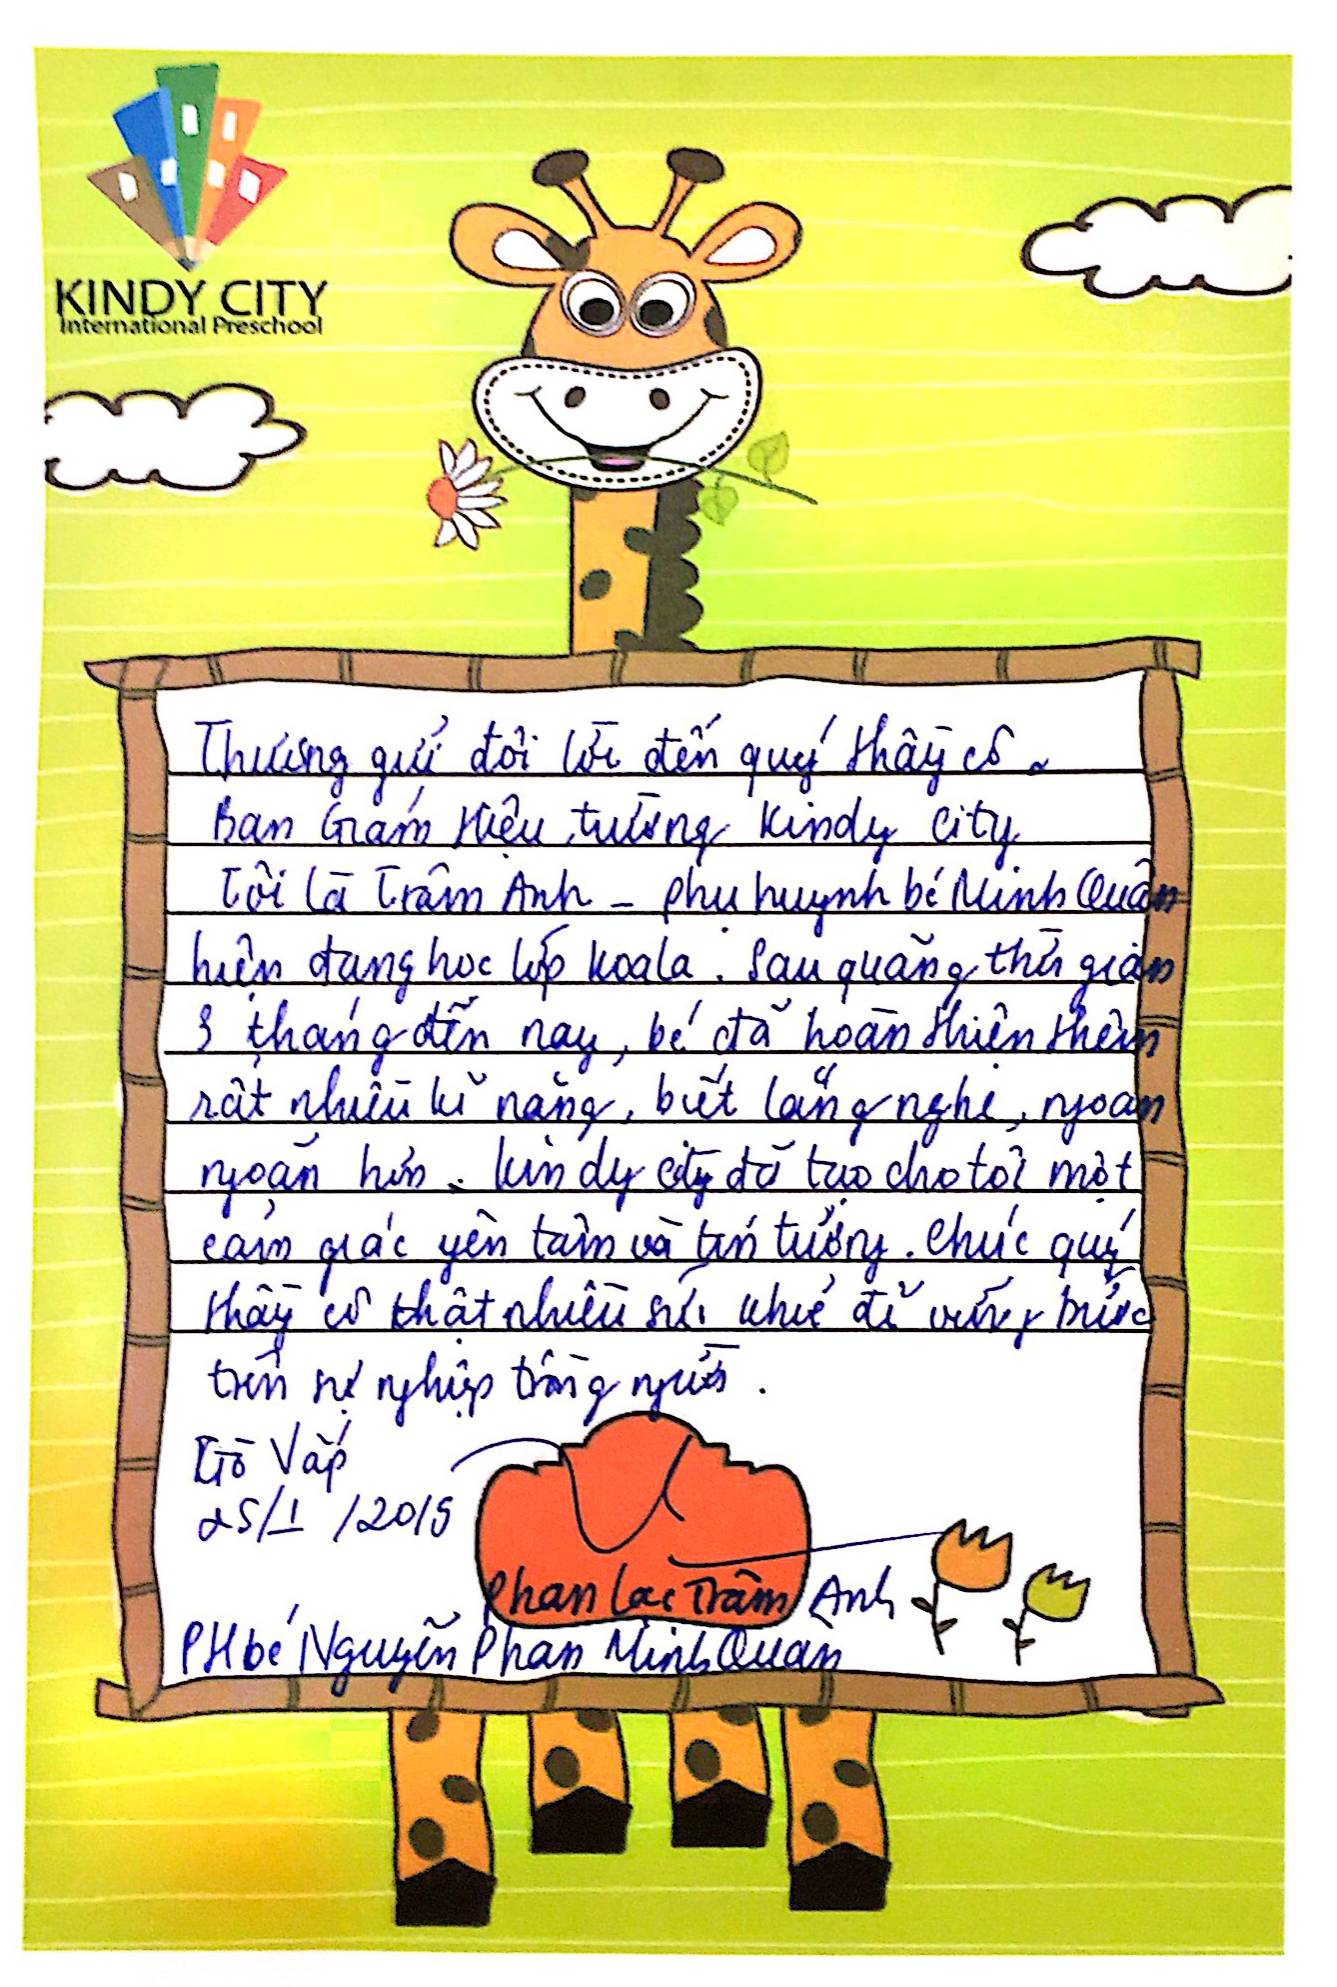 KINDY CITY
International Preschool
Thương gửi đôi lời đến quý thầy cô.
Ban Giám Hiệu trường Kindy City
Tôi là Trâm Anh - phụ huynh bé Minh Quân
hiện đang học lớp Koala. Sau quãng thời gian
3 tháng đến nay, bé đã hoàn thiện thêm
rất nhiều kĩ năng, biết lắng nghe, ngoan
ngoãn hơn. Kindy City đã tạo cho tôi một
cảm giác yên tâm và tin tưởng. Chúc quý
thầy cô thật nhiều sức khỏe để vững bước
trên sự nghiệp trồng người.
Gò Vấp
25/1/2015
Phan Lạc Trâm Anh
PH bé Nguyễn Phan Minh Quân